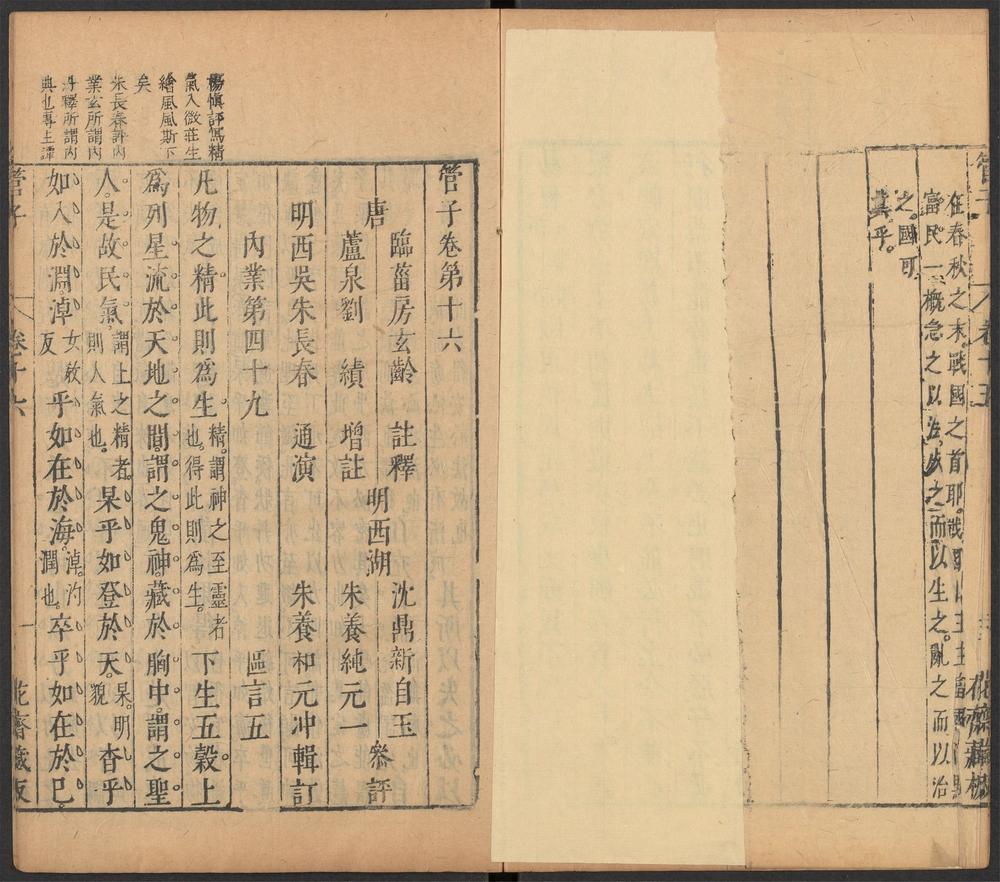 管子
卷十五
在春秋之末。戰國之首耶。
富民。一概急之以法之而以生之。亂之而以治
之。國可
冀乎。
管子卷第十六
唐臨菑房玄齡 註釋
蘆泉劉 績 增註
明西吳朱長春 通演
明西湖沈鼎新自玉
朱養純元一
叅評
朱養和元冲輯訂
內業第四十九 區言五
凡物之精此則爲生精。謂神之至靈者也。得此則爲生。下生五穀。上
爲列星。流於天地之間。謂之鬼神。藏於胸中。謂之聖
人。是故民氣。謂上之精者。則人氣也。杲乎如登於天。杲。明貌杳乎
如入於淵。淖女敎反乎如在於海。淖。汋潤也。卒乎如在於已。
楊愼評寫精
氣入微莊生
繪風風斯下
矣
朱長春評內
業玄所謂內
丹釋所謂內
典也專主譚
管子
卷十六
一
花齋藏板